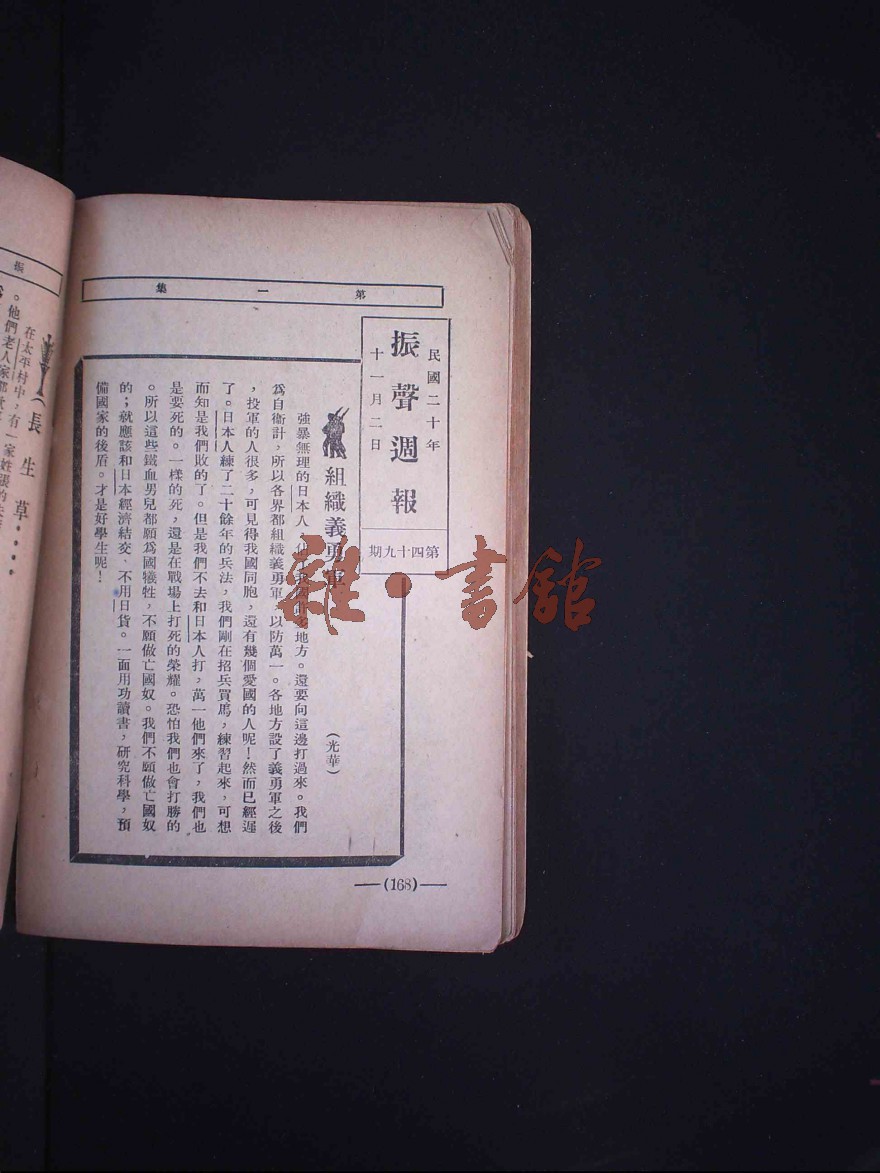 第一集
民國二十年
十一月二日
振聲週報
第四十九期
組織義勇軍
（光華）
強暴無理的日本人，佔了我國許多地方。還要向這邊打過來。我們
為自衛計，所以各界都組織義勇軍，以防萬一。各地方設了義勇軍之後
，投軍的人很多，可見得我國同胞，還有幾個愛國的人呢！然而已經遲
了。日本人練了二十餘年的兵法，我們剛在招兵買馬，練習起來，可想
而知是我們敗的了。但是我們不去和日本人打，萬一他們來了，我們也
是要死的。一樣的死，還是在戰場上打死的榮耀。恐怕我們也會打勝的
。所以這些鐵血男兒都願為國犧牲，不願做亡國奴。我們不願做亡國奴
的；就應該和日本經濟結交，不用日貨。一面用功讀書，研究科學，預
備國家的後盾。才是好學生呢！
—(168)—
振
（長生草····
在太平村中，有一家姓張的夫
。他們老人家都
雜·書館